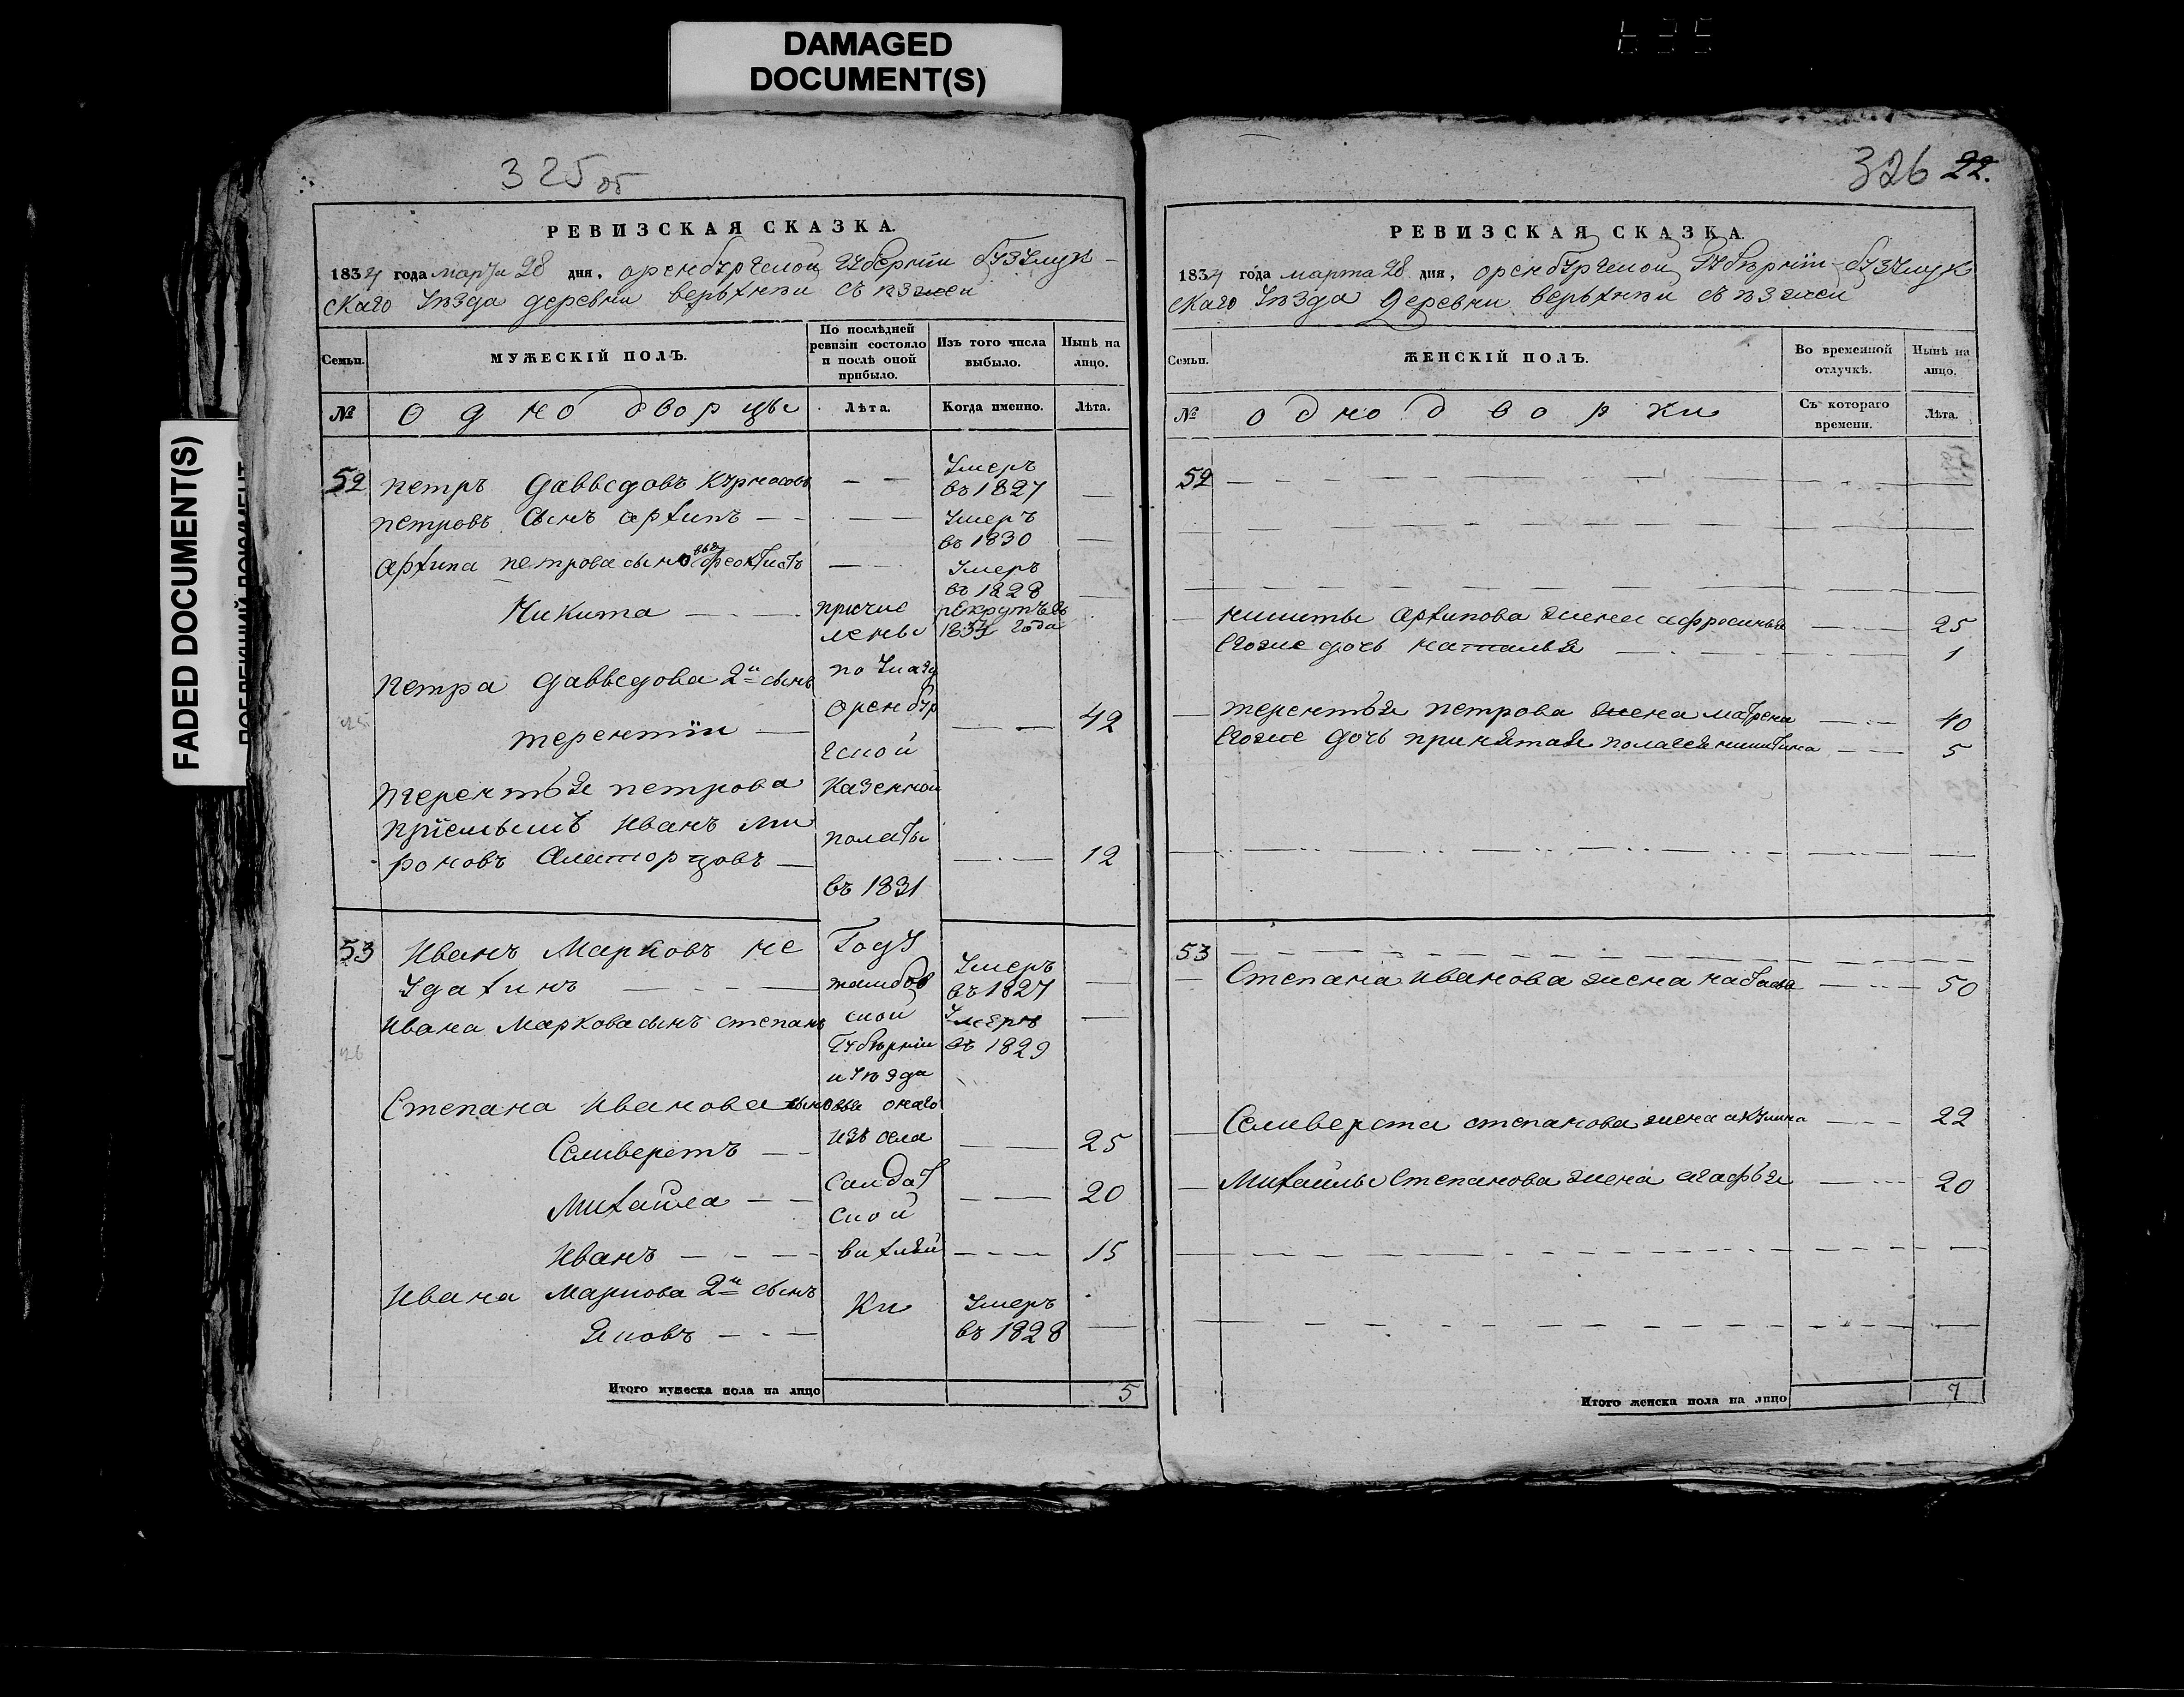 DAMAGED
DOCUMENT(S)
FADED DOCUMENT(S)
325 об
РЕВИЗСКАЯ СКАЗКА.
1834 года марта 28 дня, оренбургской губернии бузулук-
скаго уезда деревни верьхней съезжей
Семьи.
МУЖЕСКІЙ ПОЛЪ.
По послѣдней
ревизіи состояло
и послѣ оной
прибыло.
Изъ того числа
выбыло.
Нынѣ на
лицо.
№
однодворцы
Лѣта.
Когда именно.
Лѣта.
52 петръ давыдовъ курносовъ
Умеръ
въ 1827
петровъ сынъ архипъ
Умеръ
въ 1830
архипа петрова сыновья феоктистъ
Умеръ
въ 1828
Никита
причис
лены
рекрутъ въ
1834 года
петра давыдова 2й сынъ
по указу
терентіи
оренбур
гской
42
терентья петрова
казенной
пріемышъ иванъ ми
роновъ
полаты
12
въ 1831
53 Иванъ Марковъ не
удахинъ
Году
тамбов
Умеръ
въ 1827
ивана Маркова сынъ степанъ
ской
Губернии
Умеръ
въ 1829
и уезда
Степана иванова сыновья
онаго
Селиверстъ
изъ села
25
Михайла
20
ской
Иванъ
15
Ивана Маркова 2й сынъ
ки
Яковъ
Умеръ
въ 1828
Итого мужеска пола на лицо
5
326 22.
РЕВИЗСКАЯ СКАЗКА
1834 года марта 28 дня, оренбургской Губерніи бузулук
скаго уезда деревни верьхней съезжей
Семьи.
ЖЕНСКІЙ ПОЛЪ.
Во временной
отлучкѣ.
Нынѣ на
лицо.
№
однодворки
Съ котораго
времени.
Лѣта.
52
никиты архипова жена афросинья 25
Егоже дочь наталья 1
терентья петрова жена матрена 40
Егоже дочь принятая никитина 5
53
Степана иванова жена 50
Селиверста степанова жена акулина 22
Михайлы степанова жена агафья 20
Итого женска пола на лицо
7